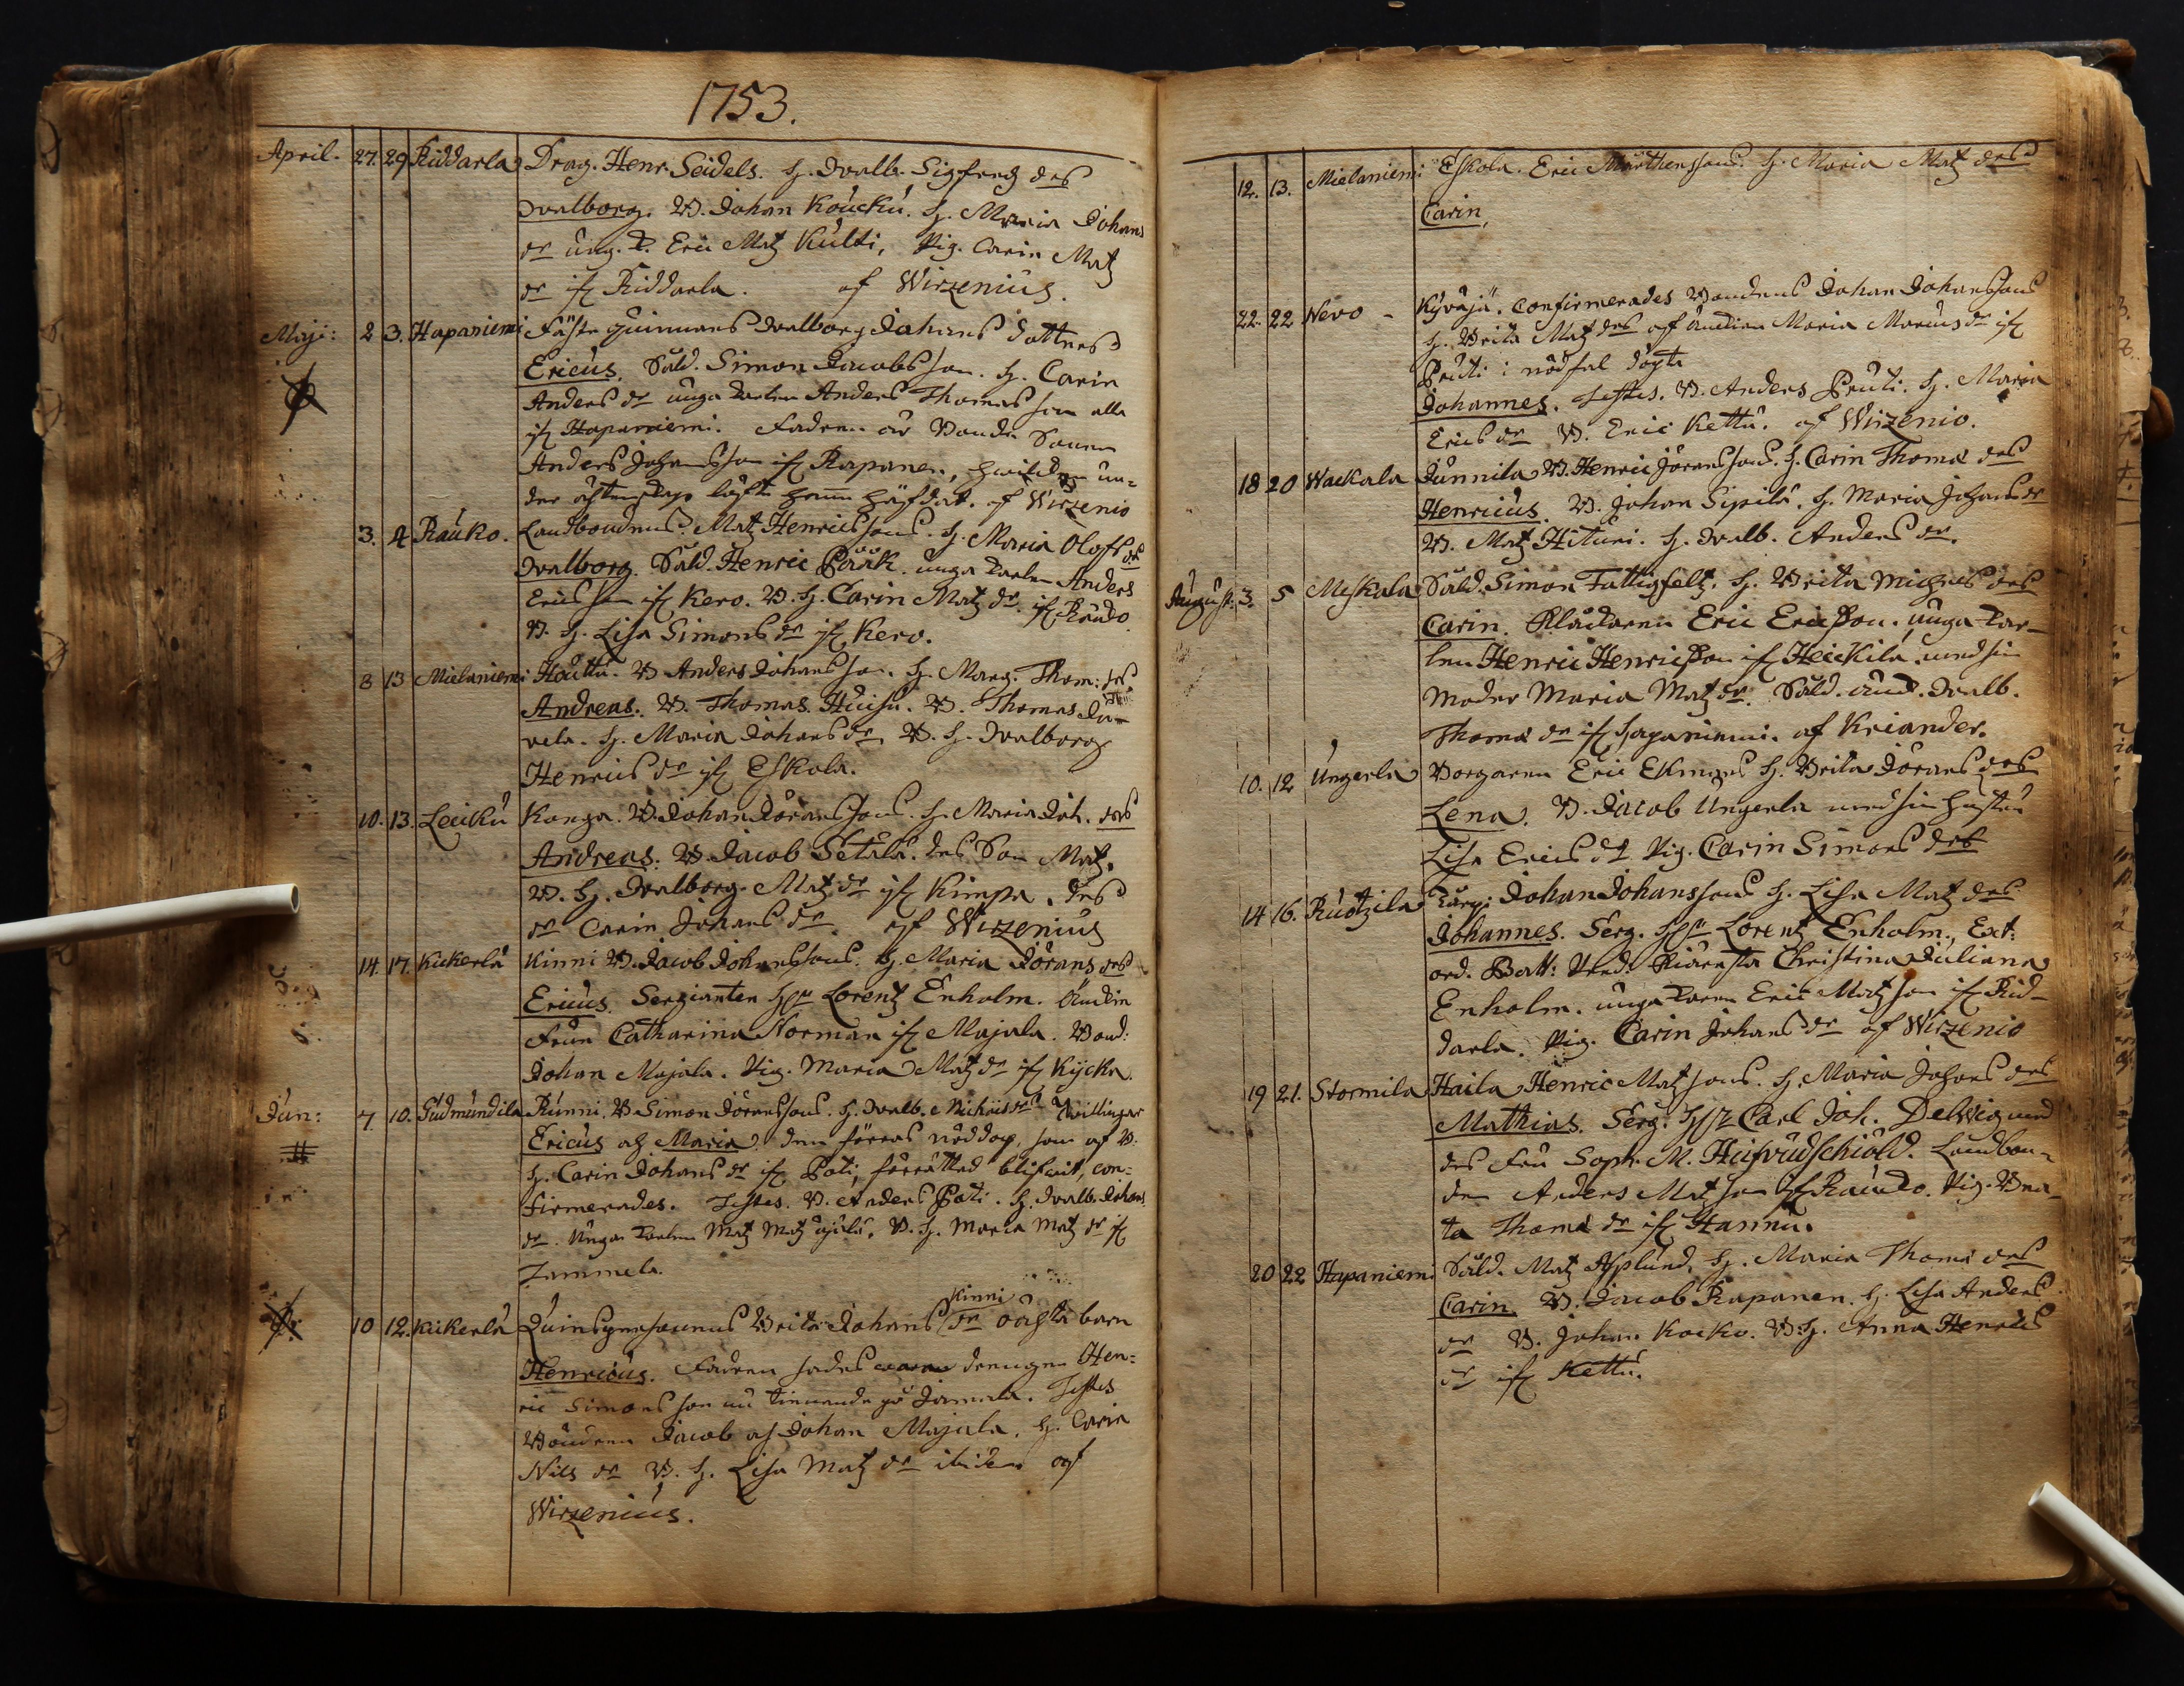 1753.
April. 27. 29 Riddarla Drag. Henr. Seidels. H. Walb. Sigfreds drs
Walborg. B. Johan Koucku. H. Maria Johans
dr ung. D. Eric Matz Kulti, Pig. Carin Matz
dr ifr Riddarla. af Wirzenius.
Maji: 2 3. Hapaniemi Fäste quinnans Walborg Johans dotters
Ericus. Sold. Simon Jacobsson. H. Carin
Anders dr unga Karlen Anders Thomasson alla
ifr Hapaniemi. Fadren är Bonde Sonen
Anders Johansson ifr Rapanen, hwilcken un=
der ächtenskaps löfte henne häfdat. af Wirzenio
3. 4 Rauko. Landbondens Matz Henricssons. H. Maria Olofs drs
Walborg. Sold. Henric Pääk. unga Karlen Anders
Ericsson ifr Kero. B. H. Carin Matz dr. ifr Raudo
B. H. Lisa Simons dr ifr Kero.
8 13 Mielaniemi Houttu. B Anders Johansson. H. Marg. Thom: drs
Andreas. B. Thomas Huisu. B. Thomas Ja-
vela. H. Maria Johans dr. B. H. Walborg
Henrics dr ifr Eskola.
10. 13. Leicku Konga. B. Johan Jöranssons. H. Maria Joh. drs
Andreas. B. Jacob Setälä. des Son Matz.
B. H. Walborg Matz dr ifr Kimpa. des
dr Carin Johans dr. af Wirzenius
14. 17. Kickerlä Kinni B. Jacob Johanssons. H. Maria Jörans drs
Ericus. Sergianten Hr Lorentz Enholm.
Frun Catharina Norman ifr Majala. Bond:
Johan Majala. Pig. Maria Matz dr ifr Kycka.
Jun: 7 10. Gudmundila Runni. B Simon Jöranssons. H. Walb. Michels drs Twillingar
Ericus och Maria den förras nöddop, som af B.
H. Carin Johans dr ifr Poti, förrättad blifwit, con=
firmerades. Testes. B. Anders Poti. H. Walb. Johans
dr. Unga Karlen Matz Matz B. H. Maria Matz dr ifr
Tammela.
Kinni
10 12. Kickerlä Quinspersonens Brita Johans dr oächta barn
Henricus. Fadren sades drengen Hen=
ric Simonsson nu tienande på Jamala. Testes
Bönderne Jacob och Johan Majala. H. Carin
Nils dr B. H. Lisa Matz dr ibidem af
Wirzenius.
12. 13. Mielaniemi Eskola. Eric Mårthenssons. H. Maria Matz drs
Carin.
22. 22 Nevo - Kyväjä. Confirmerades Bondens Johan Johanssons
H. Brita Matz drs af Änckian Maria Marcus dr ifr
Pruti i nödfal döpte
Johannes. Testes. B. Anders Pruti. H. Maria
Erics dr B. Eric Kettu. af Wirzenio.
18 20 Wackala Junnila B. Henric Jöranssons. H. Carin Thomæ drs
Henricus. B. Johan Sipilä. H. Maria Johans dr
B. Matz Hituri. H. Walb. Anders dr.
August: 3. 5 Meskala Sold. Simon Fattigfelt. H. Brita Michels drs
Carin. Klåckaren Eric Ericsson. unga Kar-
len Henric Henricsson ifr Heickilä. med sin
Moder Maria Matz dr. Sold. änck. Walb.
Thomæ dr ifr Hapaniemi. af Kriander.
10. 12 Ungerla Borgaren Eric Ekmans H. Brita Jörans drs
Lena. B. Jacob Ungerla med sin hustru
Lisa Erics dr Pig. Carin Simons drs
14 16. Ruotzila Torp: Johan Johanssons H. Lisa Matz drs
Johannes. Serg. Hr Lorentz Enholm. Ext:
ord. Batt: Christina Juliana
Enholm. unga Karen Eric Matzson ifr Rid-
darla. Pig. Carin Johans dr af Wirzenio
19 21. Stormila Haila Henric Matzsons. H. Maria Johans drs
Mathias. Serg. Hr Carl Joh. Delwig med
des Fru Soph. M. Hufvudschiöld. Landbon-
den Anders Matzson ifr Raudo. Pig. Bea-
ta Thomæ dr ifr Hannu.
20 22 Hapaniemi Sold. Matz Asplund. H. Maria Thomæ drs
Carin. B. Jacob Rapanen. H. Lisa Anders
dr B. Johan Kocko. B. H. Anna Henrics
dr ifr Kettu.